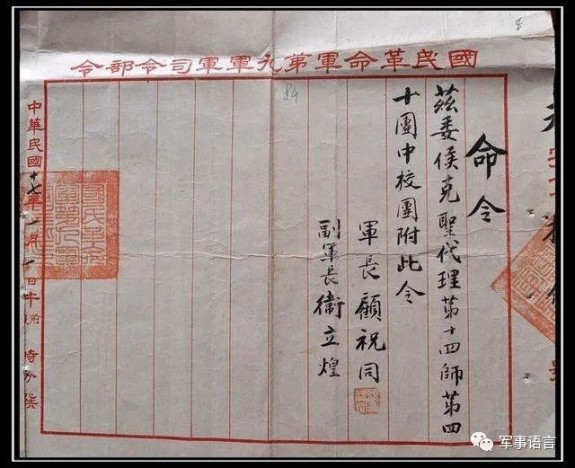 國民革命軍第九軍軍司令部令
命令
茲委侯克聖代理第十四師第四
十團中校團附此令
軍長顧祝同
副軍長衛立煌
中華民國十七年月日午時分發
军事语言